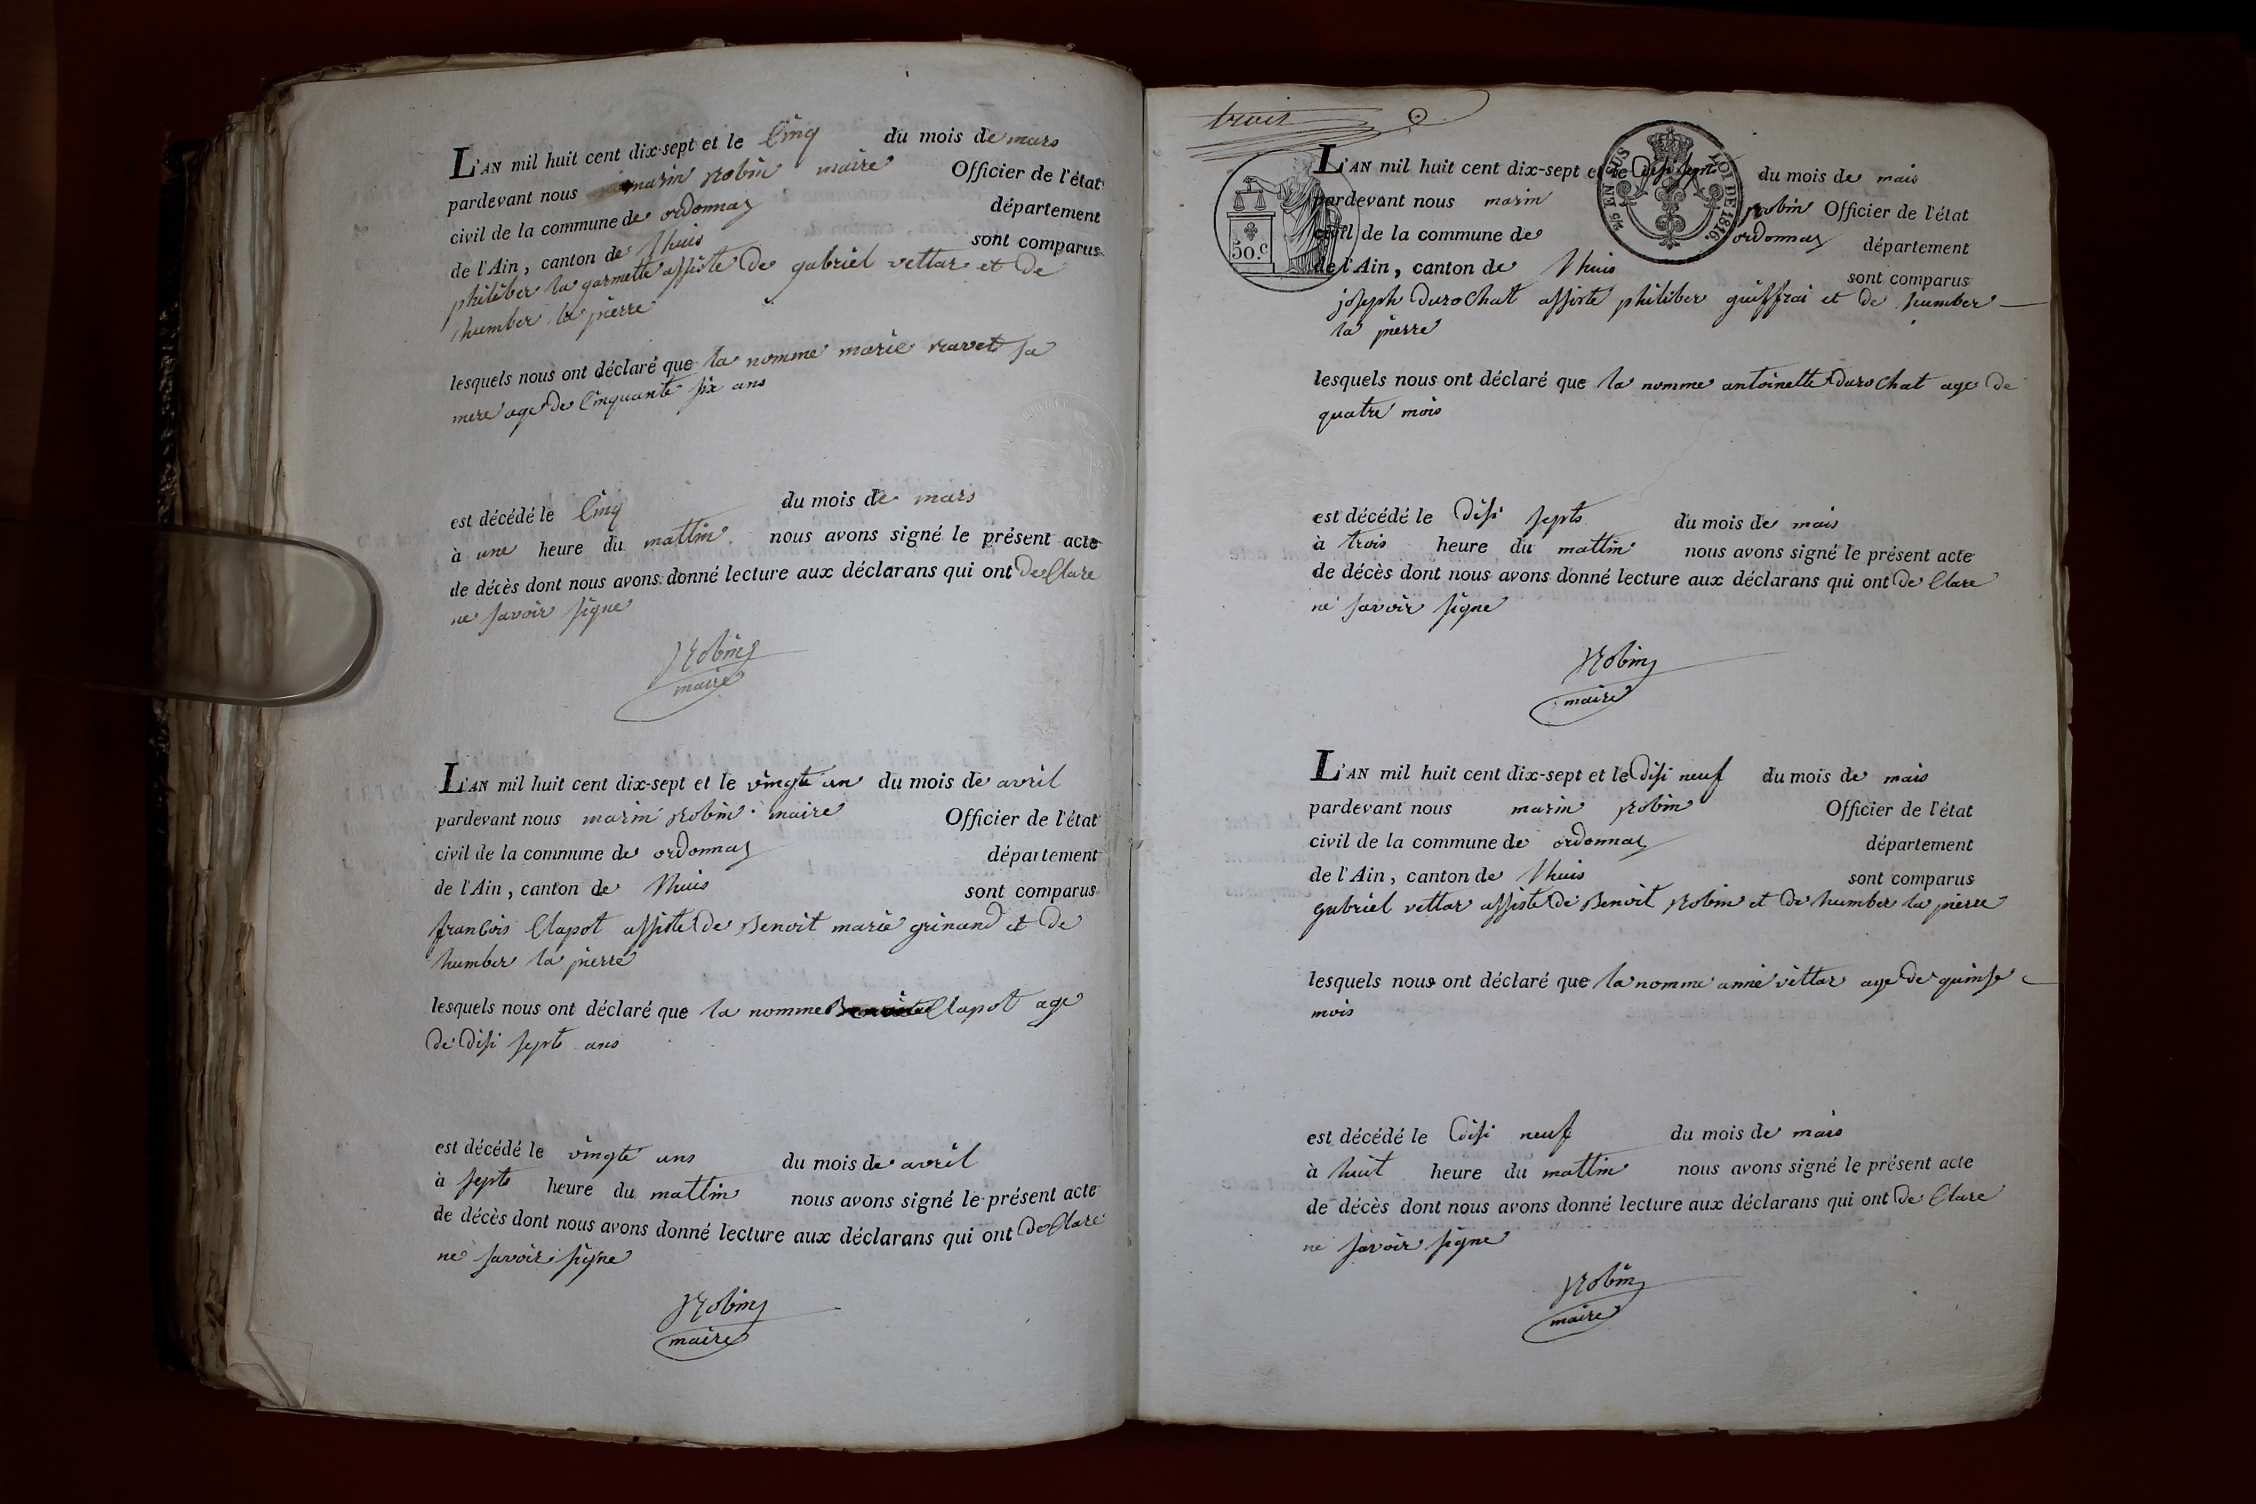 L'AN mil huit cent dix-sept et le Cinq du mois de mars
pardevant nous marin Robin maire Officier de l'état
civil de la commune de ordonnaz département
de l'Ain, canton de lhuis sont comparus
philiber la garmette assiste de gabriel vettar et de
humber la pierre
lesquels nous ont déclaré que la nomme marie ravet sa
mere age de Cinquante six ans
est décédé le Cinq du mois de mars
à une heure du mattin nous avons signé le présent acte
de décès dont nous avons donné lecture aux déclarans qui ont de Clare
ne savoir signe
Robin
maire
L'AN mil huit cent dix-sept et le vingte un du mois de avril
pardevant nous marin Robin maire Officier de l'état
civil de la commune de ordonnaz département
de l'Ain, canton de lhuis sont comparus
franCois Clapot assiste de Benoit marie grinand et de
humber la pierre
lesquels nous ont déclaré que la nomme Clapot age
de disi septs ans
est décédé le vingte uns du mois de avril
à septs heure du mattin nous avons signé le présent acte
de décès dont nous avons donné lecture aux déclarans qui ont de Clare
ne savoir signe
Robin
maire
trois
50.c
25 EN SUS LOI DE 1816.
L'AN mil huit cent dix-sept et le disi septs du mois de mais
pardevant nous marin Robin Officier de l'état
civil de la commune de ordonnaz département
de l'Ain, canton de lhuis sont comparus
joseph duroChat assiste philiber guiffrai et de humber
la pierre
lesquels nous ont déclaré que la nomme antoinette duroChat age de
quatre mois
est décédé le disi septs du mois de mais
à trois heure du mattin nous avons signé le présent acte
de décès dont nous avons donné lecture aux déclarans qui ont de Clare
ne savoir signe
Robin
maire
L'AN mil huit cent dix-sept et le disi neuf du mois de mais
pardevant nous marin Robin Officier de l'état
civil de la commune de ordonnaz département
de l'Ain, canton de lhuis sont comparus
gabriel vettar assiste de Benoit Robin et de humber la pierre
lesquels nous ont déclaré que la nomme anne vettar age de quinse
mois
est décédé le disi neuf du mois de mais
à huit heure du mattin nous avons signé le présent acte
de décès dont nous avons donné lecture aux déclarans qui ont de Clare
ne savoir signe
Robin
maire